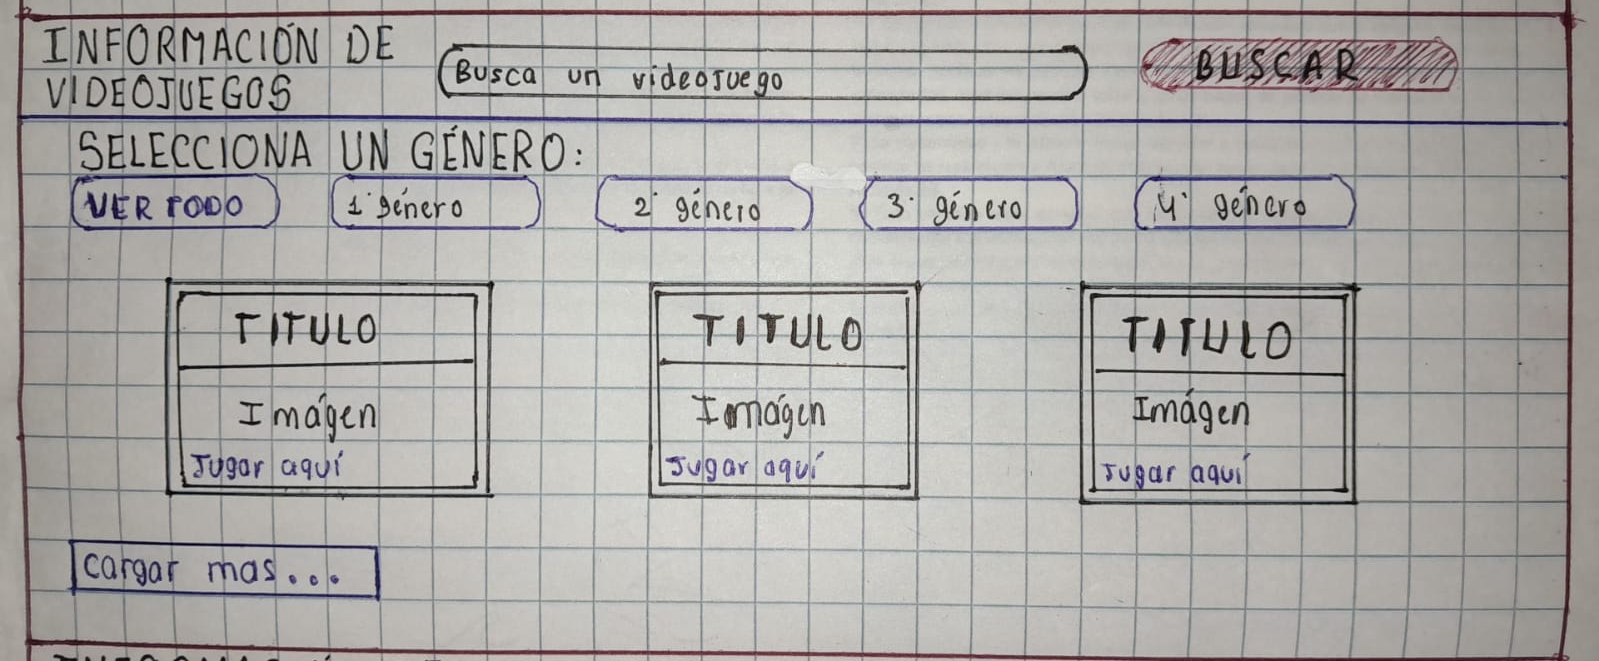 INFORMACIÓN DE
VIDEOJUEGOS
Busca un videojuego
BUSCAR
SELECCIONA UN GÉNERO:
VER TODO
1° género
2° género
3° género
4° género
TITULO
Imágen
Jugar aquí
TITULO
Imágen
Jugar aquí
TITULO
Imágen
Jugar aquí
cargar mas...